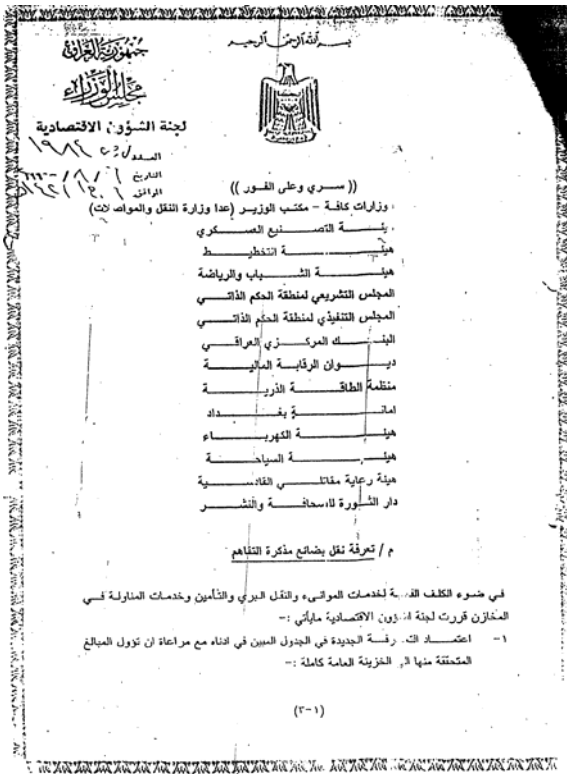 بسم الله الرحمن الرحيم
جمهورية العراق
مجلس الوزراء
لجنة الشؤون الاقتصادية
العدد
التاريخ
الموافق
(( سري وعلى الفور ))
وزارات كافة - مكتب الوزير (عدا وزارة النقل والمواصلات)
التصنيع العسكري
هيئة التخطيط
هيئة الشباب والرياضة
المجلس التشريعي لمنطقة الحكم الذاتي
المجلس التنفيذي لمنطقة الحكم الذاتي
البنك المركزي العراقي
ديوان الرقابة المالية
منظمة الطاقة الذرية
امانة بغداد
هيئة الكهرباء
هيئة السياحة
هيئة رعاية مقاتلي القادسية
دار الثورة للصحافة والنشر
م / تعرفة نقل بضائع مذكرة التفاهم
في ضوء الكلف لخدمات الموانىء والنقل البري والتأمين وخدمات المناولة في
المخازن قررت لجنة الشؤون الاقتصادية مايأتي :-
١- اعتماد التعرفة الجديدة في الجدول المبين في ادناه مع مراعاة ان تؤول المبالغ
المتحققة منها الى الخزينة العامة كاملة :-
(١-٣)